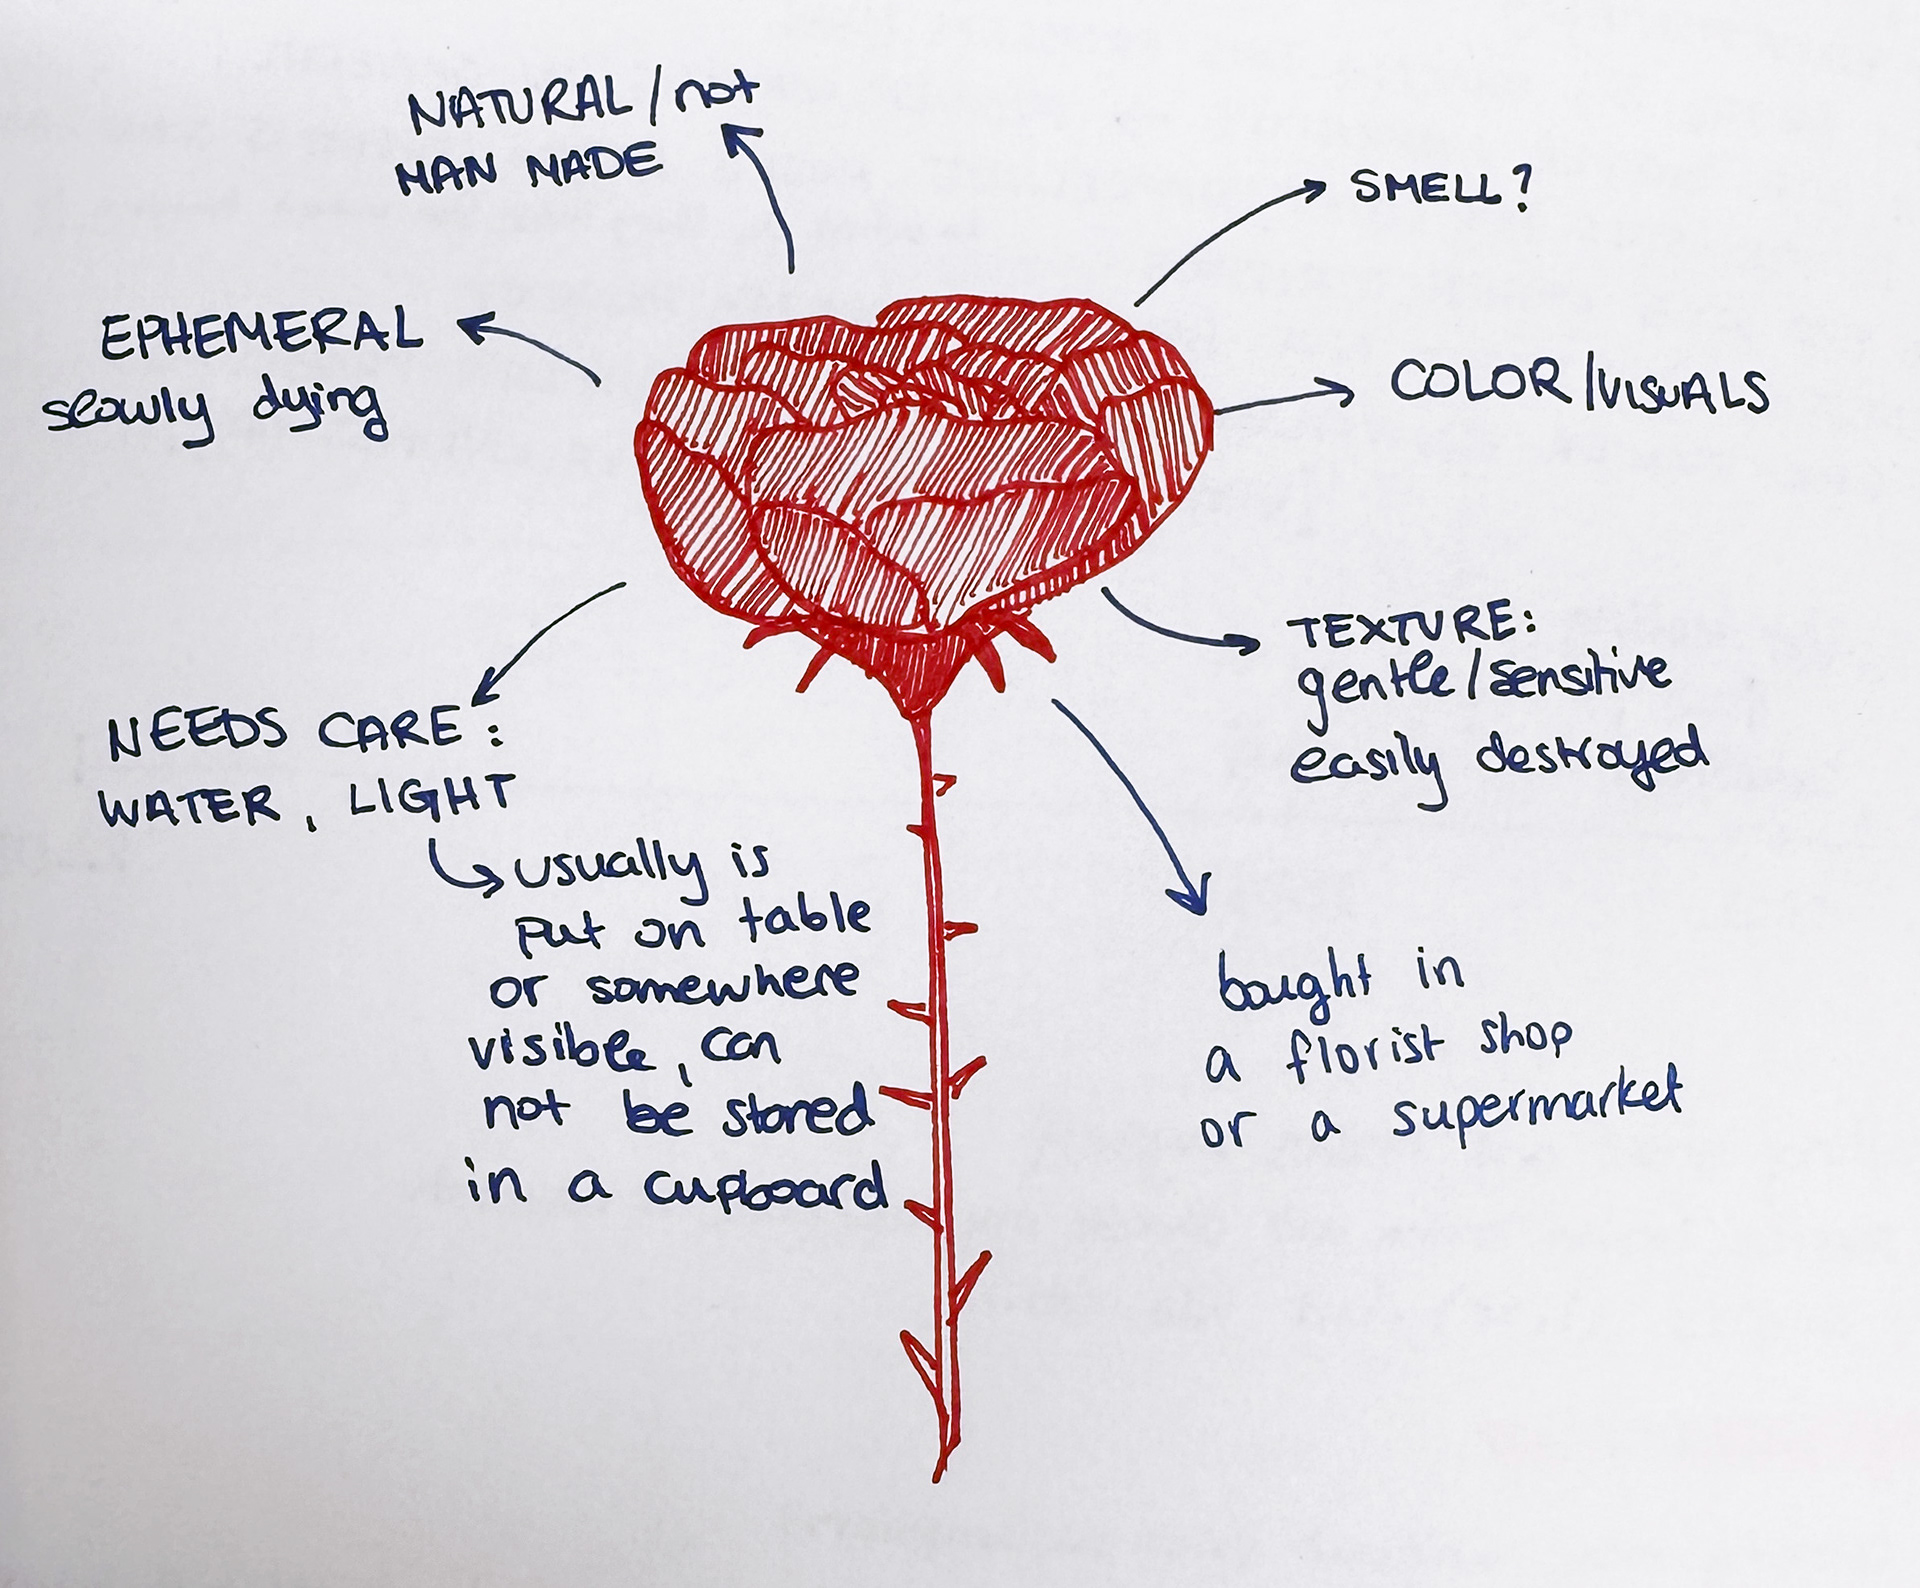 NATURAL / not
MAN MADE
SMELL?
EPHEMERAL
slowly dying
COLOR / VISUALS
TEXTURE:
gentle / sensitive
easily destroyed
NEEDS CARE:
WATER, LIGHT
usually is
put on table
or somewhere
visible, can
not be stored
in a cupboard
bought in
a florist shop
or a supermarket